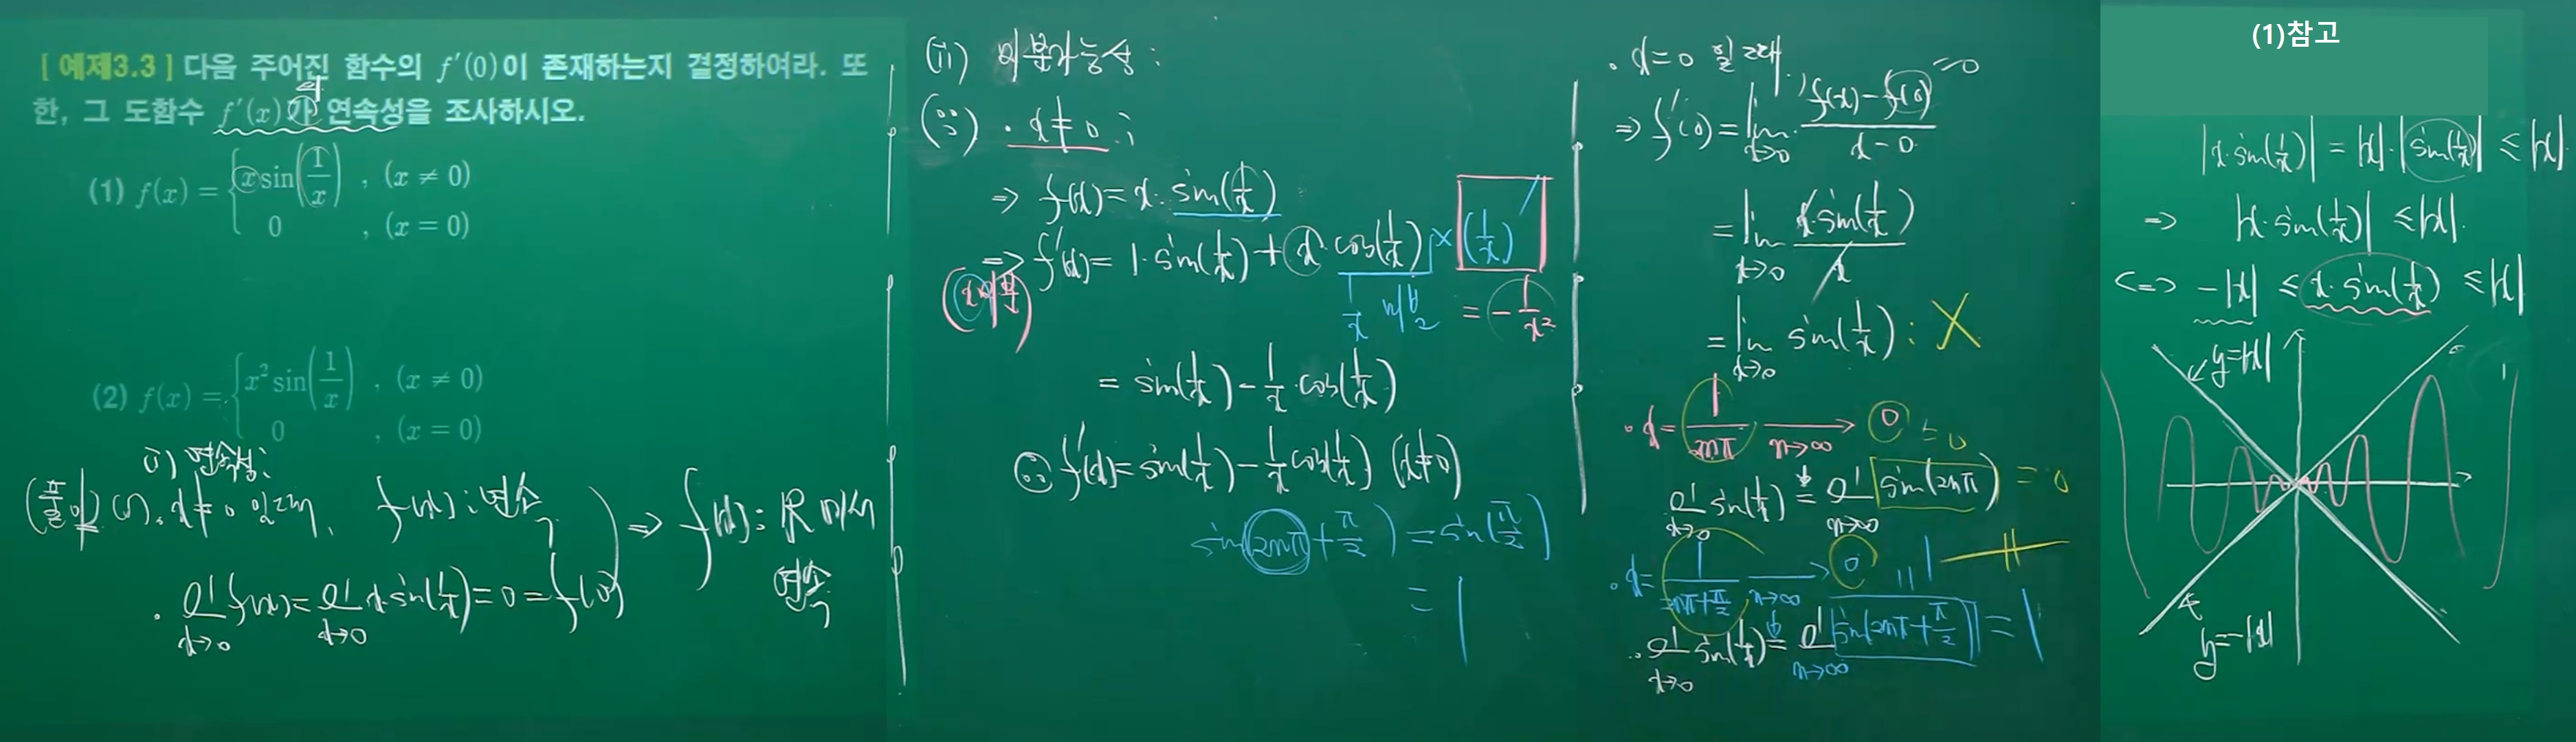 [ 예제3.3 ] 다음 주어진 함수의 f′(0)이 존재하는지 결정하여라. 또
한, 그 도함수 f′(x)가 연속성을 조사하시오.
의
(1) f(x) = { x sin(1/x) , (x ≠ 0)
0 , (x = 0)
(2) f(x) = { x² sin(1/x) , (x ≠ 0)
0 , (x = 0)
i) 연속성:
x ≠ 0 일 때, f(x) : 연속
⇒ f(x) : ℝ 에서
연속
· lim x→0 f(x) = lim x→0 x·sin(1/x) = 0 = f(0)
(ii) 미분가능성 :
(∵) · x ≠ 0 ;
⇒ f(x) = x · sin(1/x)
⇒ f′(x) = 1 · sin(1/x) + x · cos(1/x) × (1/x)′
= -1/x²
= sin(1/x) - 1/x · cos(1/x)
∴ f′(x) = sin(1/x) - 1/x cos(1/x) (x ≠ 0)
sin(2nπ + π/2) = sin(π/2)
= 1
· x = 0 일 때,
⇒ f′(0) = lim x→0 (f(x) - f(0))/(x - 0)
= 0
= lim x→0 x sin(1/x) / x
= lim x→0 sin(1/x) : X
· x = 1/2nπ → n→∞ 0
lim x→0 sin(1/x) = lim n→∞ sin(2nπ) = 0
· x = 1/(2nπ + π/2) → n→∞ 0
lim x→0 sin(1/x) = lim n→∞ sin(2nπ + π/2) = 1
(1)참고
|x·sin(1/x)| = |x|·|sin(1/x)| ≤ |x|.
⇒ |x·sin(1/x)| ≤ |x|.
⇔ -|x| ≤ x·sin(1/x) ≤ |x|
y=|x|
y=-|x|